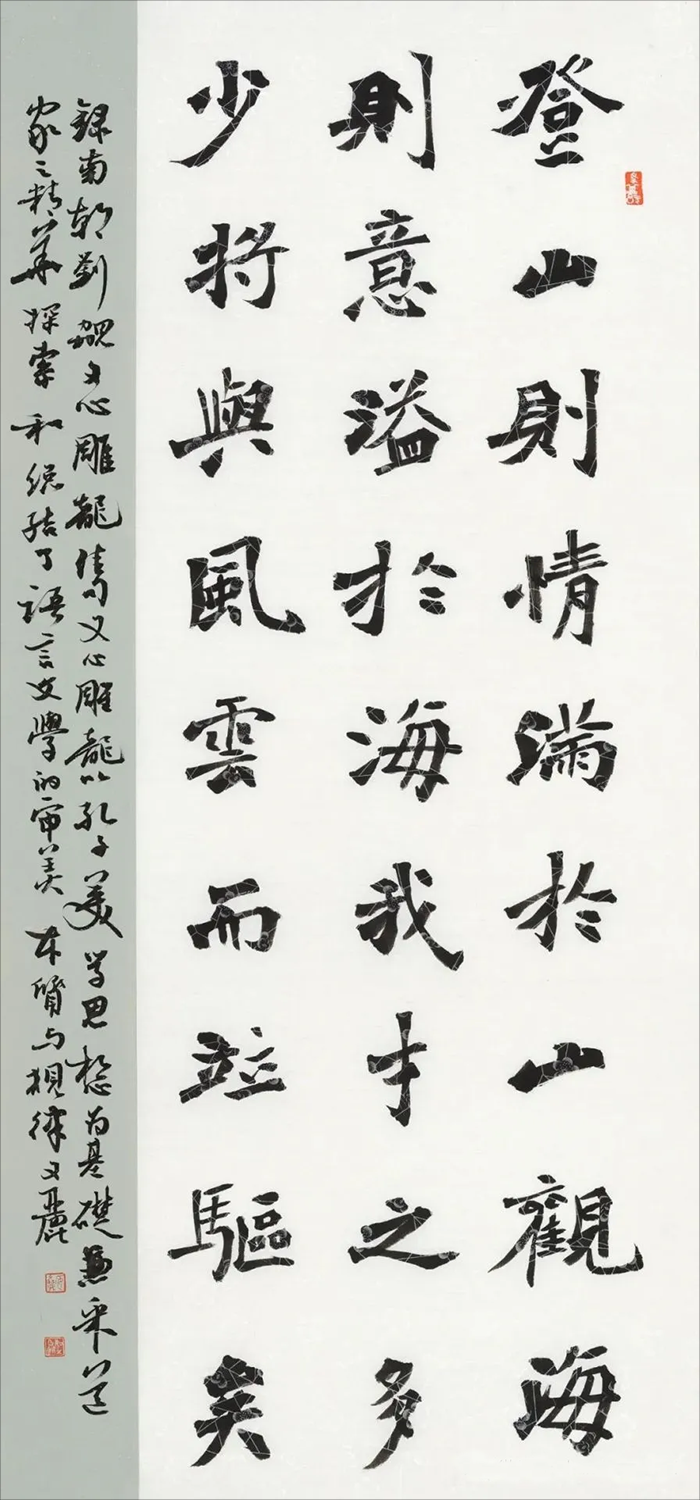 登山則情滿於山觀海
則意溢於海我才之多
少將與風雲而竝驅矣
録南朝劉勰文心雕龍雋句文心雕龍以孔子美學思想爲基礎兼采道
家之精華探索和總結了語言文學的審美本質與規律文麗